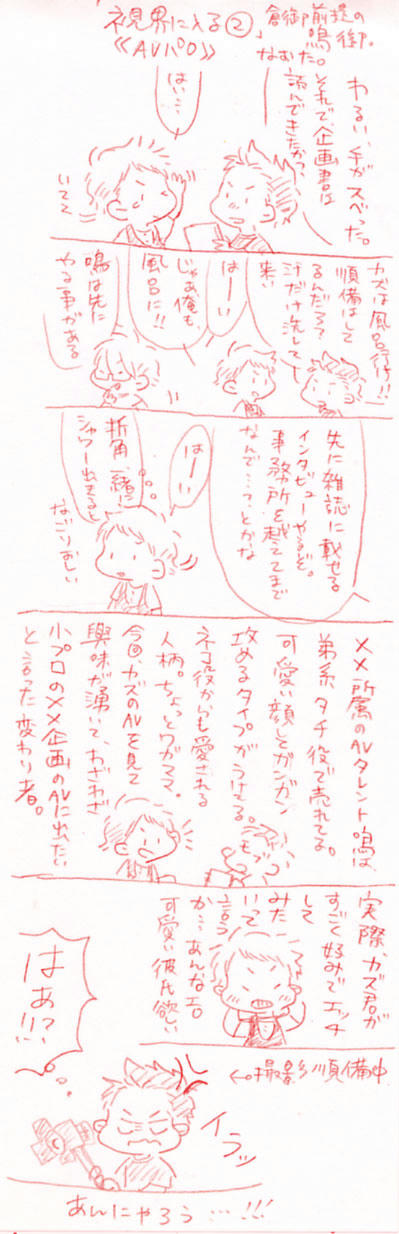 視界に入る②
《AVパロ》
倉御前提の
鳴御。
わるい、手が
スベった。
なおた。
それで、企画書は
読んできたかっ
はい…
いてて
カズは風呂行け!!
順備はして
るんだろ?
汁だけ流して
来い
はーい
じゃあ俺も、
風呂に!!
鳴は先に
やる事がある
先に雑誌に載せる
インタビューやるぞ。
事務所を越えてまで
なんで…、とかな
はーい
折角一緒に
シャワー出来ると
なごりおしい
××所属のAVタレント鳴は、
弟系タチ役で売れてる。
可愛い顔してガンガン
攻めるタイプがうけてる。
ネコ役からも愛される
人柄。ちょっとワガママ。
今回、カズのAVを見て
興味が湧いて、わざわざ
小プロの××企画のAVに出たい
と言った変わり者。
モブ
実際、カズ君が
すごく好みでエッチ
して
みた
いて
言う
か…あんなエロ
可愛い彼氏欲しい
はぁ!?
←撮影順備中
イラッ
あんにゃろう…!!!